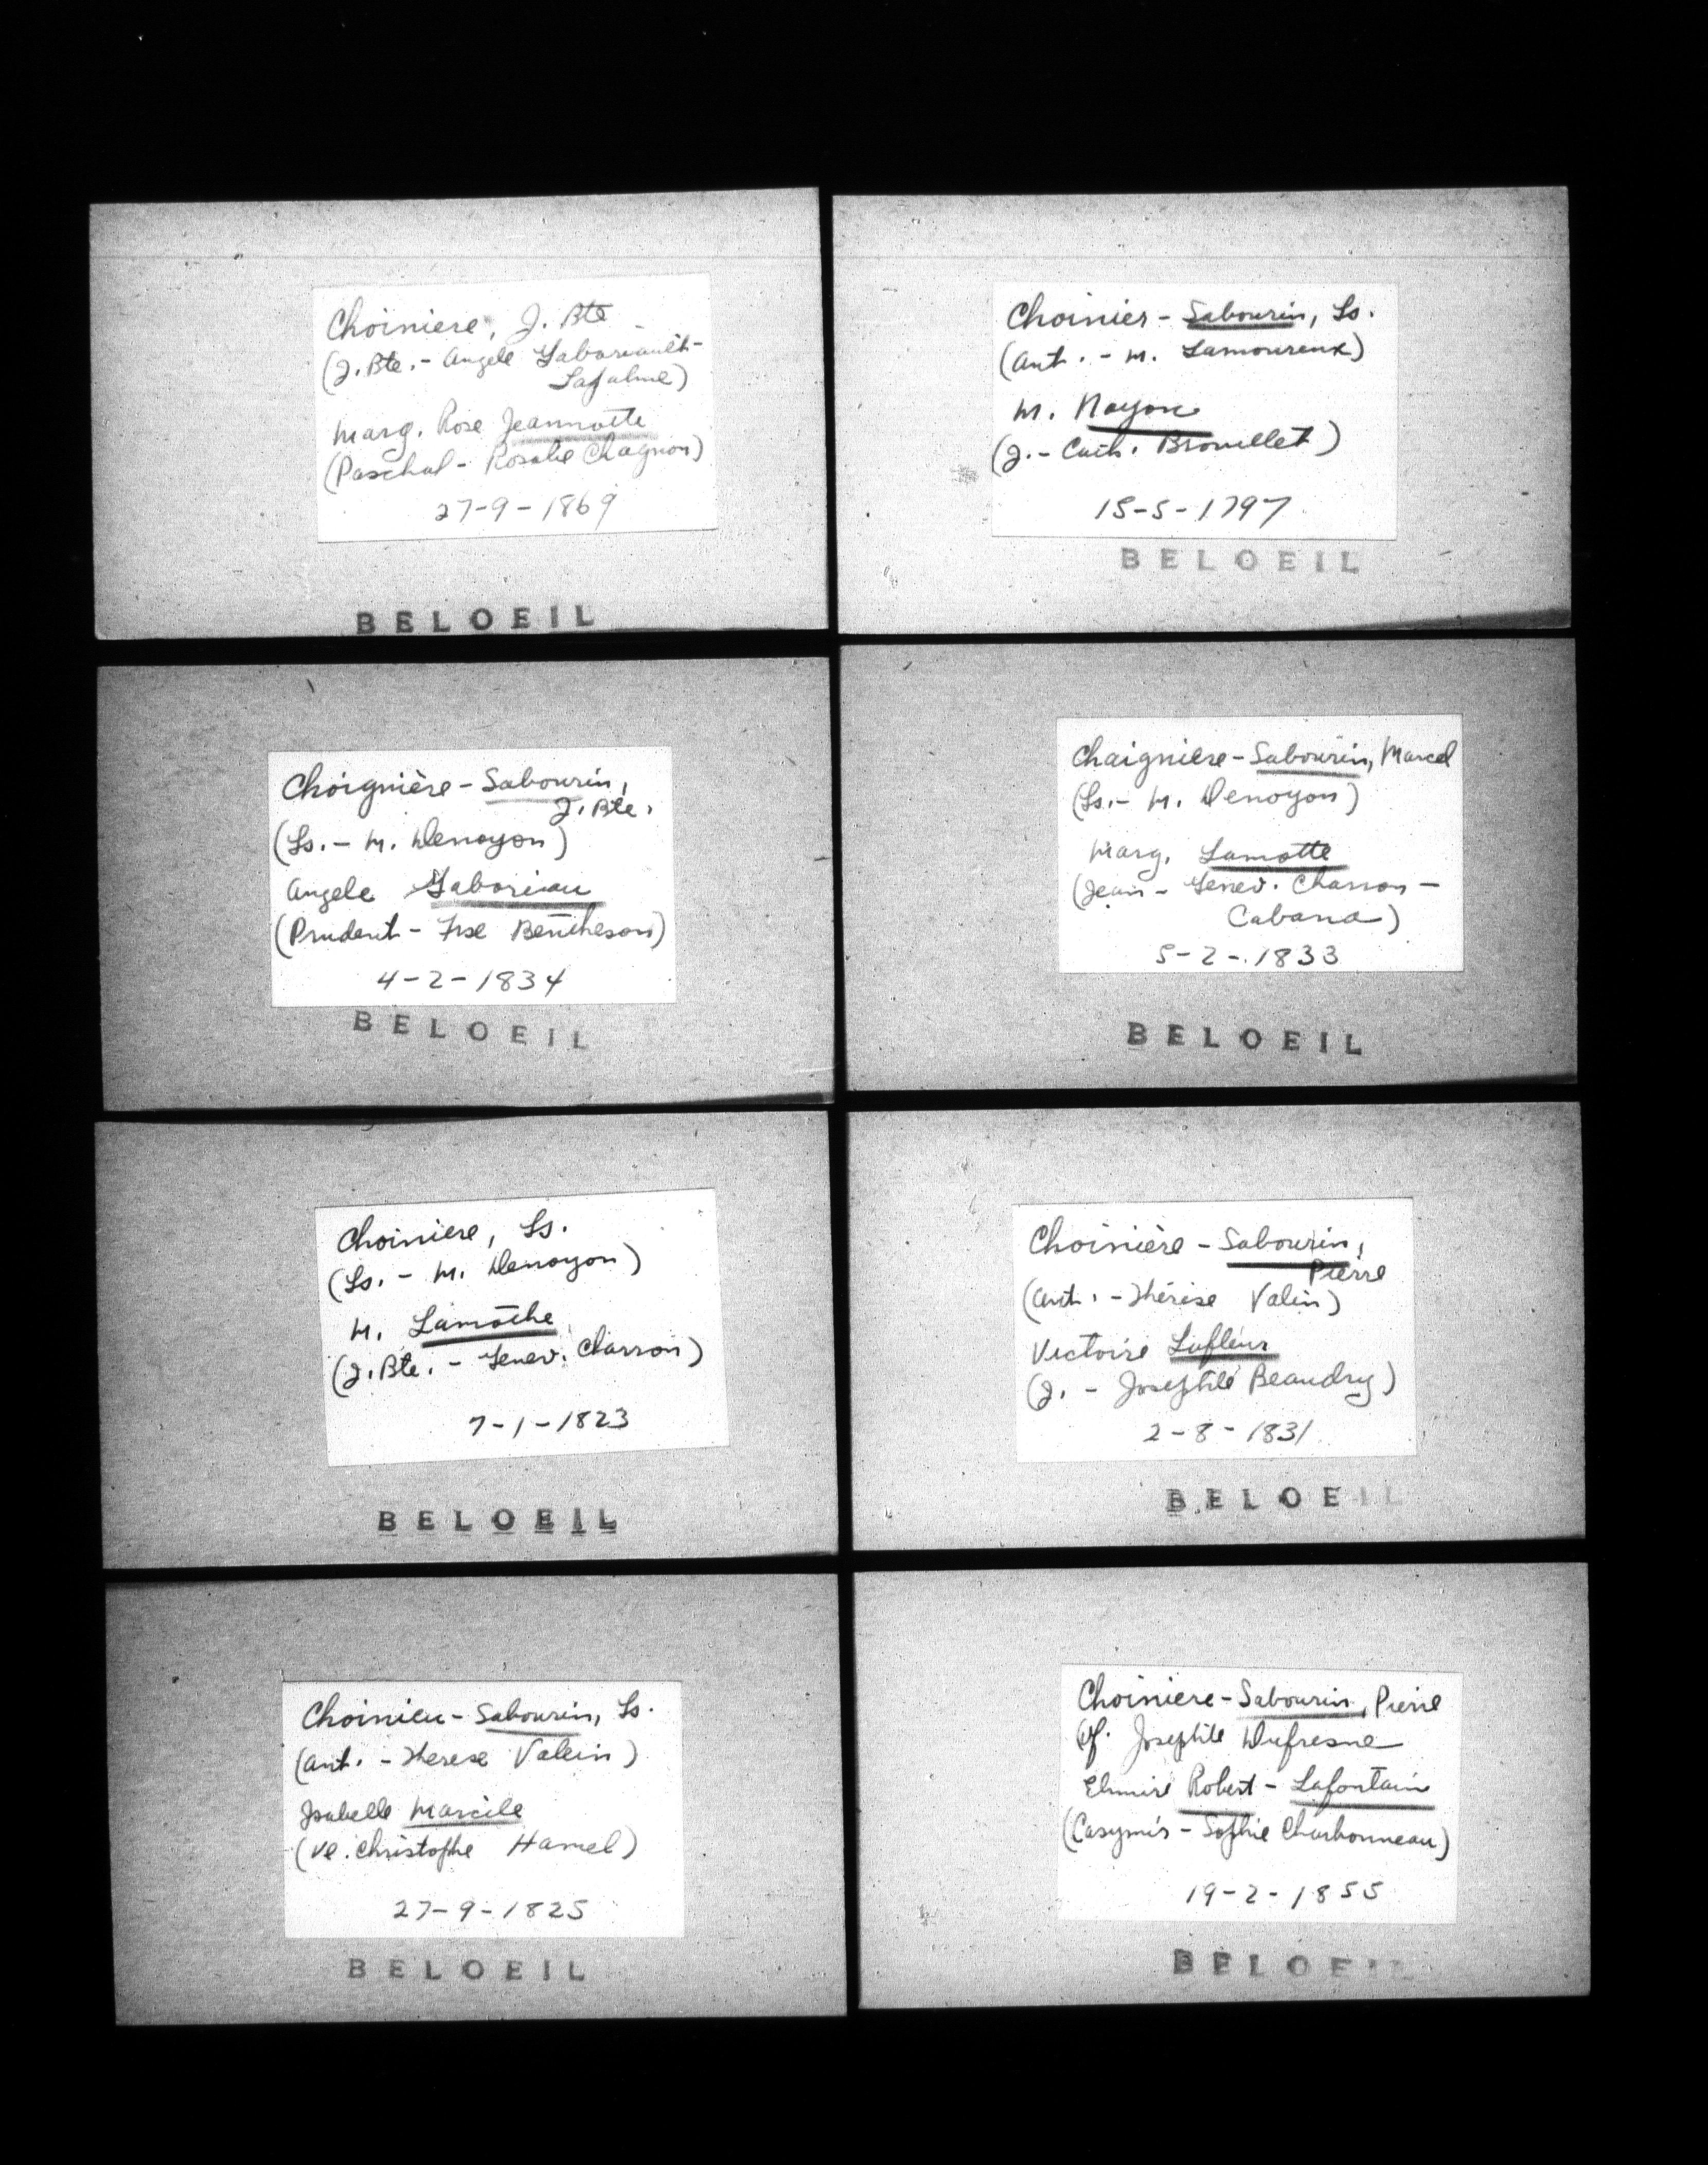 Choiniere, J. Bte
(J. Bte. - Angele Gaboriault-
Lapalme)
Marg. Rose Jeannotte
(Paschal - Rosalie Chagnon)
27-9-1869
BELOEIL
Choinier - Sabourin, Ls.
(Ant. - M. Lamoureux)
M. Noyon
(J. - Cath. Brouillet)
15-5-1797
BELOEIL
Choignière - Sabourin,
J. Bte.
(Ls. - M. Denoyon)
Angele Gaboriau
(Prudent - Fse Bentheson)
4-2-1834
BELOEIL
Chaigniere - Sabourin, Marcel
(Ls. - M. Denoyon)
Marg. Lamotte
(Jean - Genev. Charron -
Cabana)
5-2-1833
BELOEIL
Choiniere, Ls.
(Ls. - M. Denoyon)
M. Lamothe
(J. Bte. - Genev. Charron)
7-1-1823
BELOEIL
Choinière - Sabourin,
Pierre
(Ant. - Thérèse Valin)
Victoire Lafleur
(J. - Josephte Beaudry)
2-8-1831
BELOEIL
Choinieu - Sabourin, Ls.
(Ant. - Therese Valein)
Isabelle Marcile
(Ve. Christophe Hamel)
27-9-1825
BELOEIL
Choiniere - Sabourin, Pierre
Vf. Josephte Dufresne
Elmire Robert - Lafontain
(Casymir - Sophie Charbonneau)
19-2-1855
BELOEIL